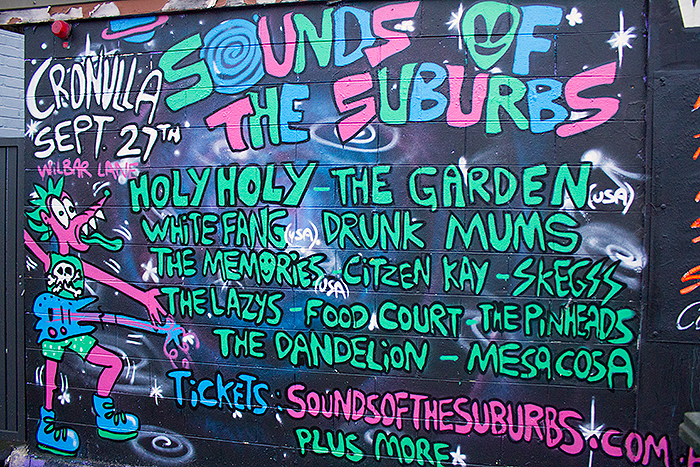 SOUNDS OF
THE SUBURBS
CRONULLA
SEPT 27TH
WILBAR LANE
HOLY HOLY - THE GARDEN (USA)
WHITE FANG (USA) DRUNK MUMS
THE MEMORIES (USA) - CITZEN KAY - SKEGSS
THE LAZYS - FOOD COURT - THE PINHEADS
THE DANDELION - MESA COSA
TICKETS: SOUNDSOFTHESUBURBS.COM.
PLUS MORE